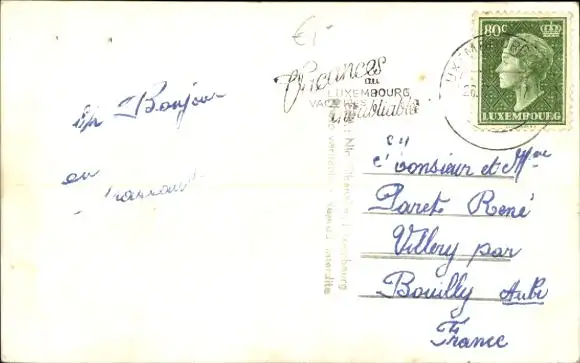 €1-
80c
LUXEMBOURG
Vacances
au
LUXEMBOURG
VACANCES
inoubliables
Un Bonjour
en passant
Monsieur et Mme
Paret René
Villery par
Bouilly Aube
France